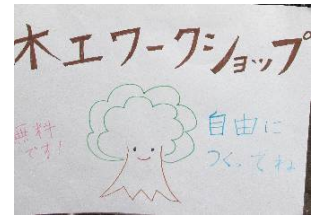 木工ワークショップ
無料
です!
自由に
つくってね